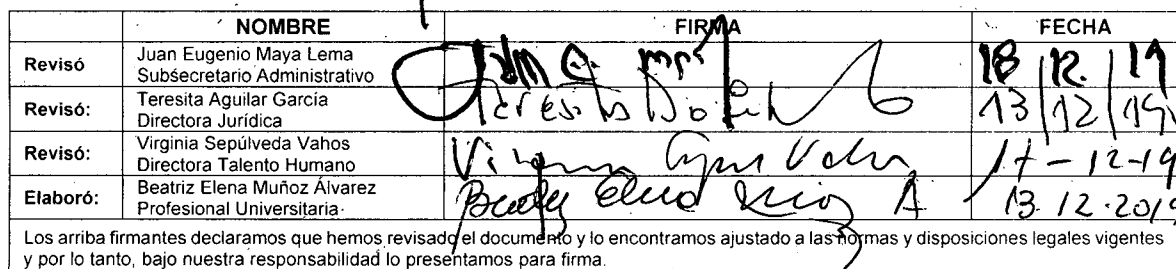 NOMBRE FIRMA FECHA
Revisó Juan Eugenio Maya Lema
Subsecretario Administrativo 18/12/19
Revisó: Teresita Aguilar García
Directora Jurídica Teresita 13/12/19
Revisó: Virginia Sepúlveda Vahos
Directora Talento Humano 17-12-19
Elaboró: Beatriz Elena Muñoz Álvarez
Profesional Universitaria 13.12.2019
Los arriba firmantes declaramos que hemos revisado el documento y lo encontramos ajustado a las normas y disposiciones legales vigentes
y por lo tanto, bajo nuestra responsabilidad lo presentamos para firma.